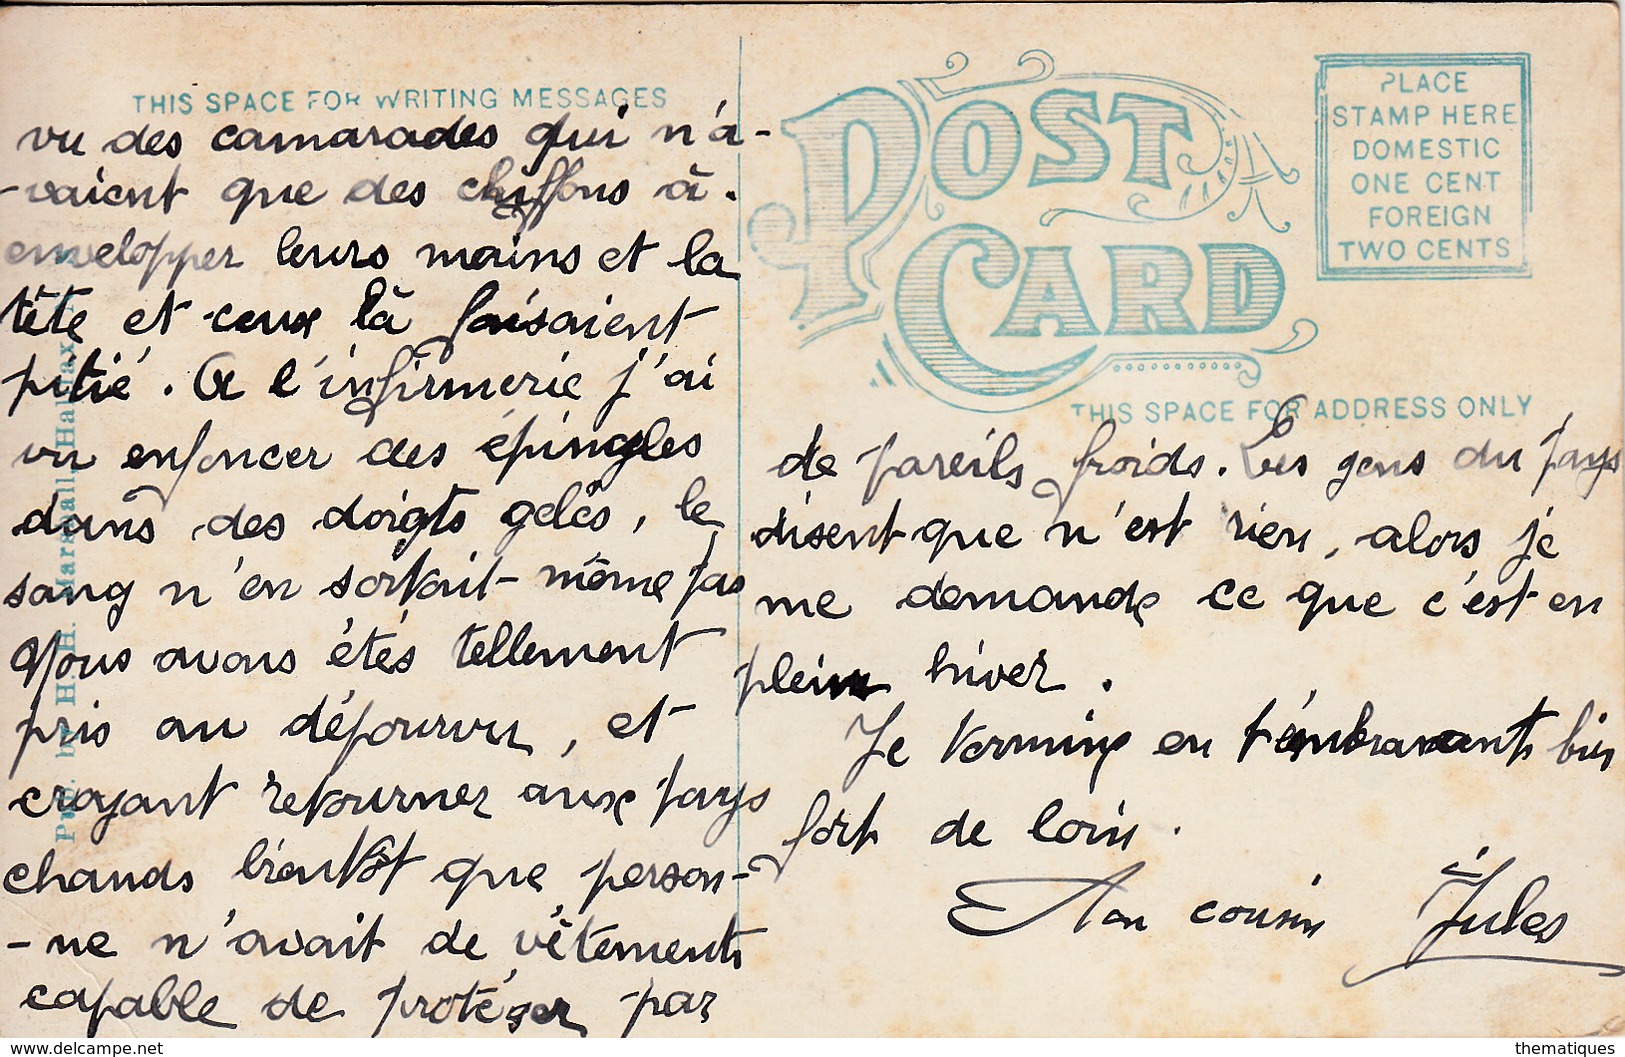 THIS SPACE FOR WRITING MESSAGES
vu des camarades qui n'a-
-vaient que des chiffons à.
envelopper leurs mains et la
tête et ceux là faisaient
pitié. A l'infirmerie j'ai
vu enfoncer des épingles
dans des doigts gelés, le
sang n'en sortait même pas
Nous avons étés tellement
pris au dépourvu, et
croyant retourner aux pays
chauds bientôt que person-
-ne n'avait de vêtements
capable de protéger par
Pub. by H. H. Marshall, Halifax
POST CARD
PLACE
STAMP HERE
DOMESTIC
ONE CENT
FOREIGN
TWO CENTS
THIS SPACE FOR ADDRESS ONLY
de pareils froids. Les gens du pays
disent que n'est rien, alors je
me demande ce que c'est en
plein hiver.
Je termine en t'embrassant bien
fort de loin.
Ton cousin Jules
thematiques